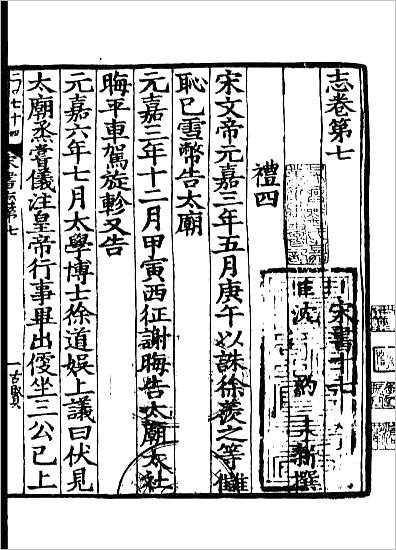 志卷第七
宋書十七
沈約新撰
禮四
宋文帝元嘉三年五月庚午以誅徐羨之等讎
恥已雪幣告太廟
元嘉三年十二月甲寅西征謝晦告太廟太社
晦平車駕旋軫又告
元嘉六年七月太學博士徐道娛上議曰伏見
太廟烝嘗儀注皇帝行事畢出便坐三公已上
宋書志第七
古賢